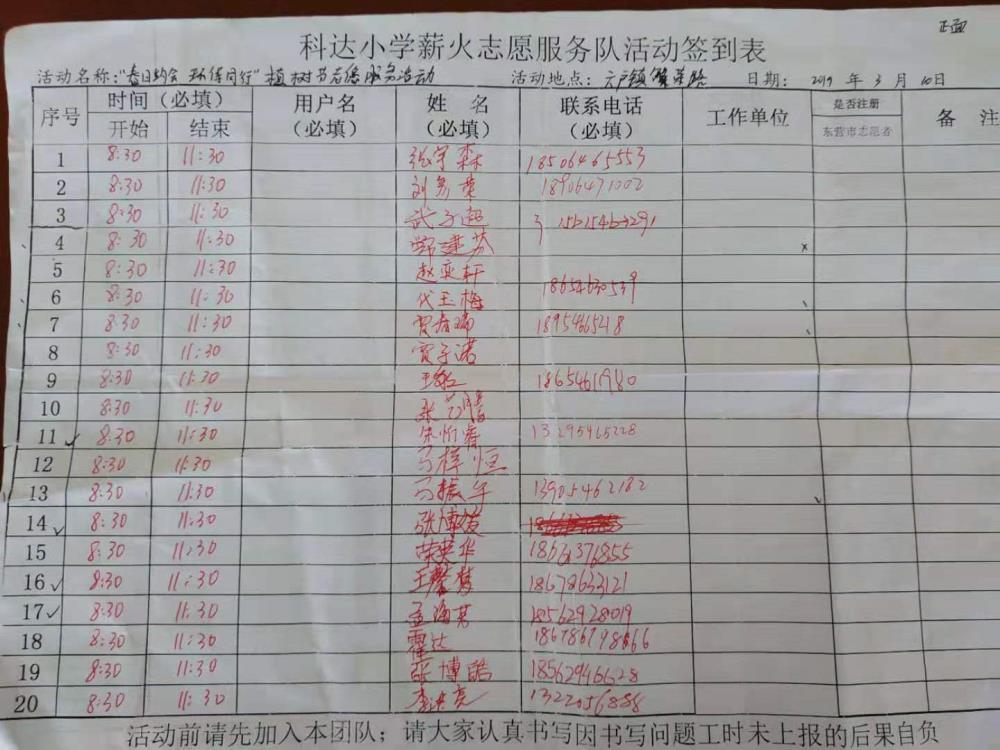 正面
科达小学薪火志愿服务队活动签到表
活动名称："春日约会 环保同行"植树志愿服务活动 活动地点：六户镇 日期：2019 年 3 月 10日
序号 时间（必填） 用户名（必填） 姓 名（必填） 联系电话（必填） 工作单位 是否注册东营市志愿者 备 注
开始 结束
1 8:30 11:30 张宇森 18506465553
2 8:30 11:30 18906471002
3 8:30 11:30 武子超
4 8:30 11:30 鄂建芬
5 8:30 11:30 赵奕轩
6 8:30 11:30 代玉梅 18654630539
7 8:30 11:30 贾春瑞 1895465218
8 8:30 11:30 贾子诺
9 8:30 11:30 1865461980
10 8:30 11:30 张
11 8:30 11:30 朱忻睿 13295465228
12 8:30 11:30 马梓恒
13 8:30 11:30 马振午 13905462182
14 8:30 11:30 张博媛
15 8:30 11:30 荣英华 18661376855
16 8:30 11:30 王馨梦 18678633121
17 8:30 11:30 孟海英 18562928019
18 8:30 11:30 霍达
19 8:30 11:30 张博皓 18562946628
20 8:30 11:30 李洪亮 1322056888
活动前请先加入本团队；请大家认真书写因书写问题工时未上报的后果自负